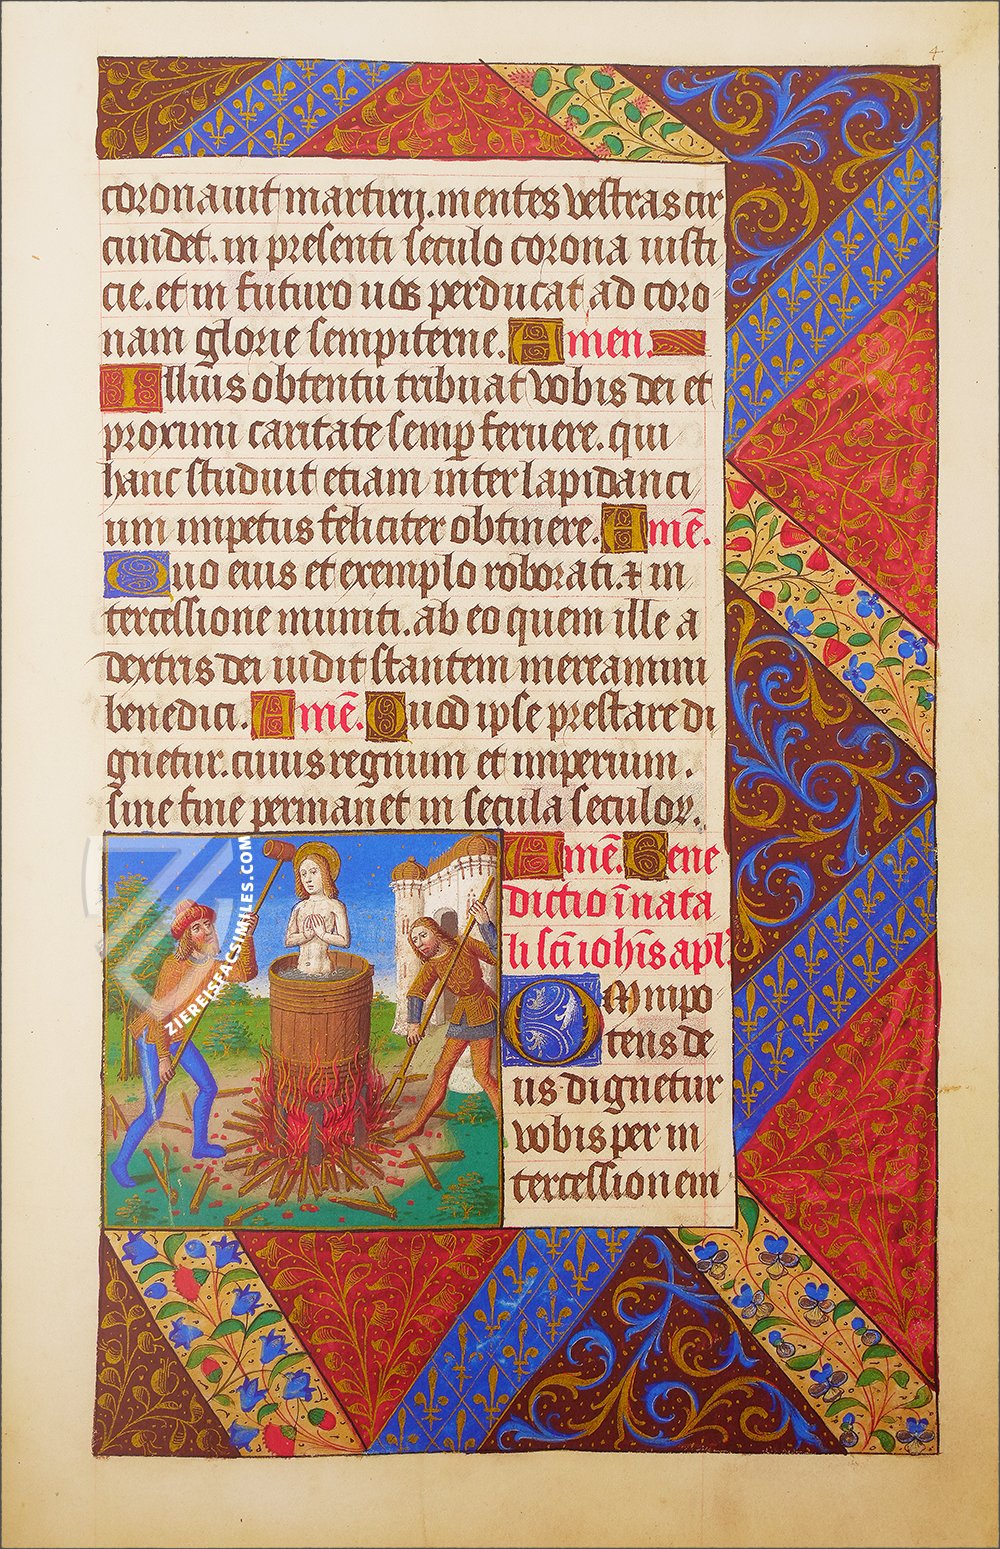 4
coronauit martirij. mentes vestras cir
cundet. in presenti seculo corona iusti
cie. et in futuro uos perducat ad coro
nam glorie sempiterne. Amen.
Illius obtentu tribuat vobis dei et
proximi caritate semp feruere. qui
hanc studuit etiam inter lapidanci
um impetus feliciter obtinere. Amē.
Quo eius et exemplo roborati. ⁊ in
tercessione muniti. ab eo quem ille a
dextris dei uidit stantem mereamini
benedici. Amē. Quod ipse prestare di
gnetur. cuius regnum et imperium.
sine fine permanet in secula seculoꝝ.
Amē. Bene
dictio ī nata
li scī iohīs apl̄.
Omnipo
tens de
us dignetur
vobis per in
tercessionem
ZIEREISFACSIMILES.COM